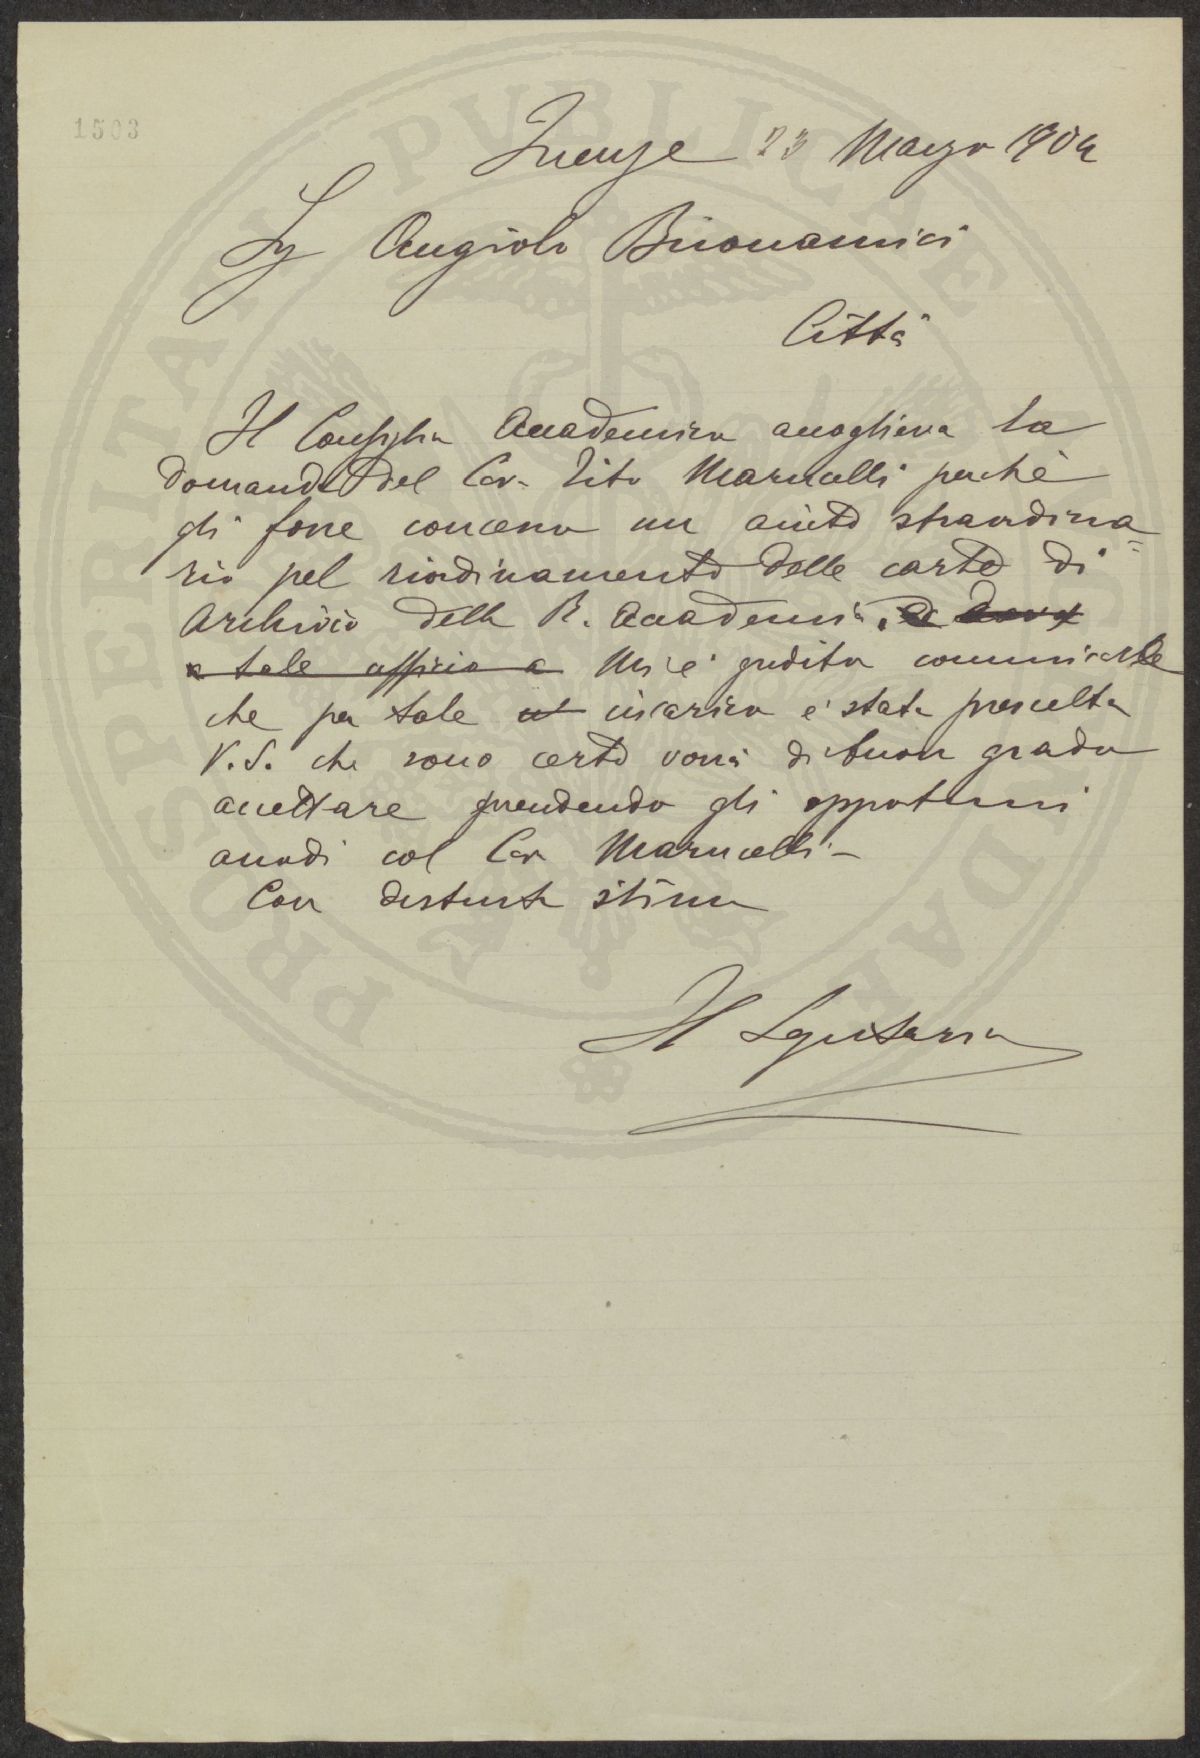 1503
Firenze 23 Marzo 1904
Sig Angiolo Buonamici
Città
Il Consiglio Accademico accoglieva la
domanda del Cav. Tito Marucelli perchè
gli fosse concesso un aiuto straordina=
rio pel riordinamento delle carte di
Archivio della R. Accademia.
a tale ufficio a Mi è gradito comunicarle
che per tale incarico è stata prescelta
V.S. che sono certo vorrà di buon grado
accettare prendendo gli opportuni
accordi col Cav Marucelli -
Con distinta stima
Il Segretario
PROSPERITATI PVBLICAE